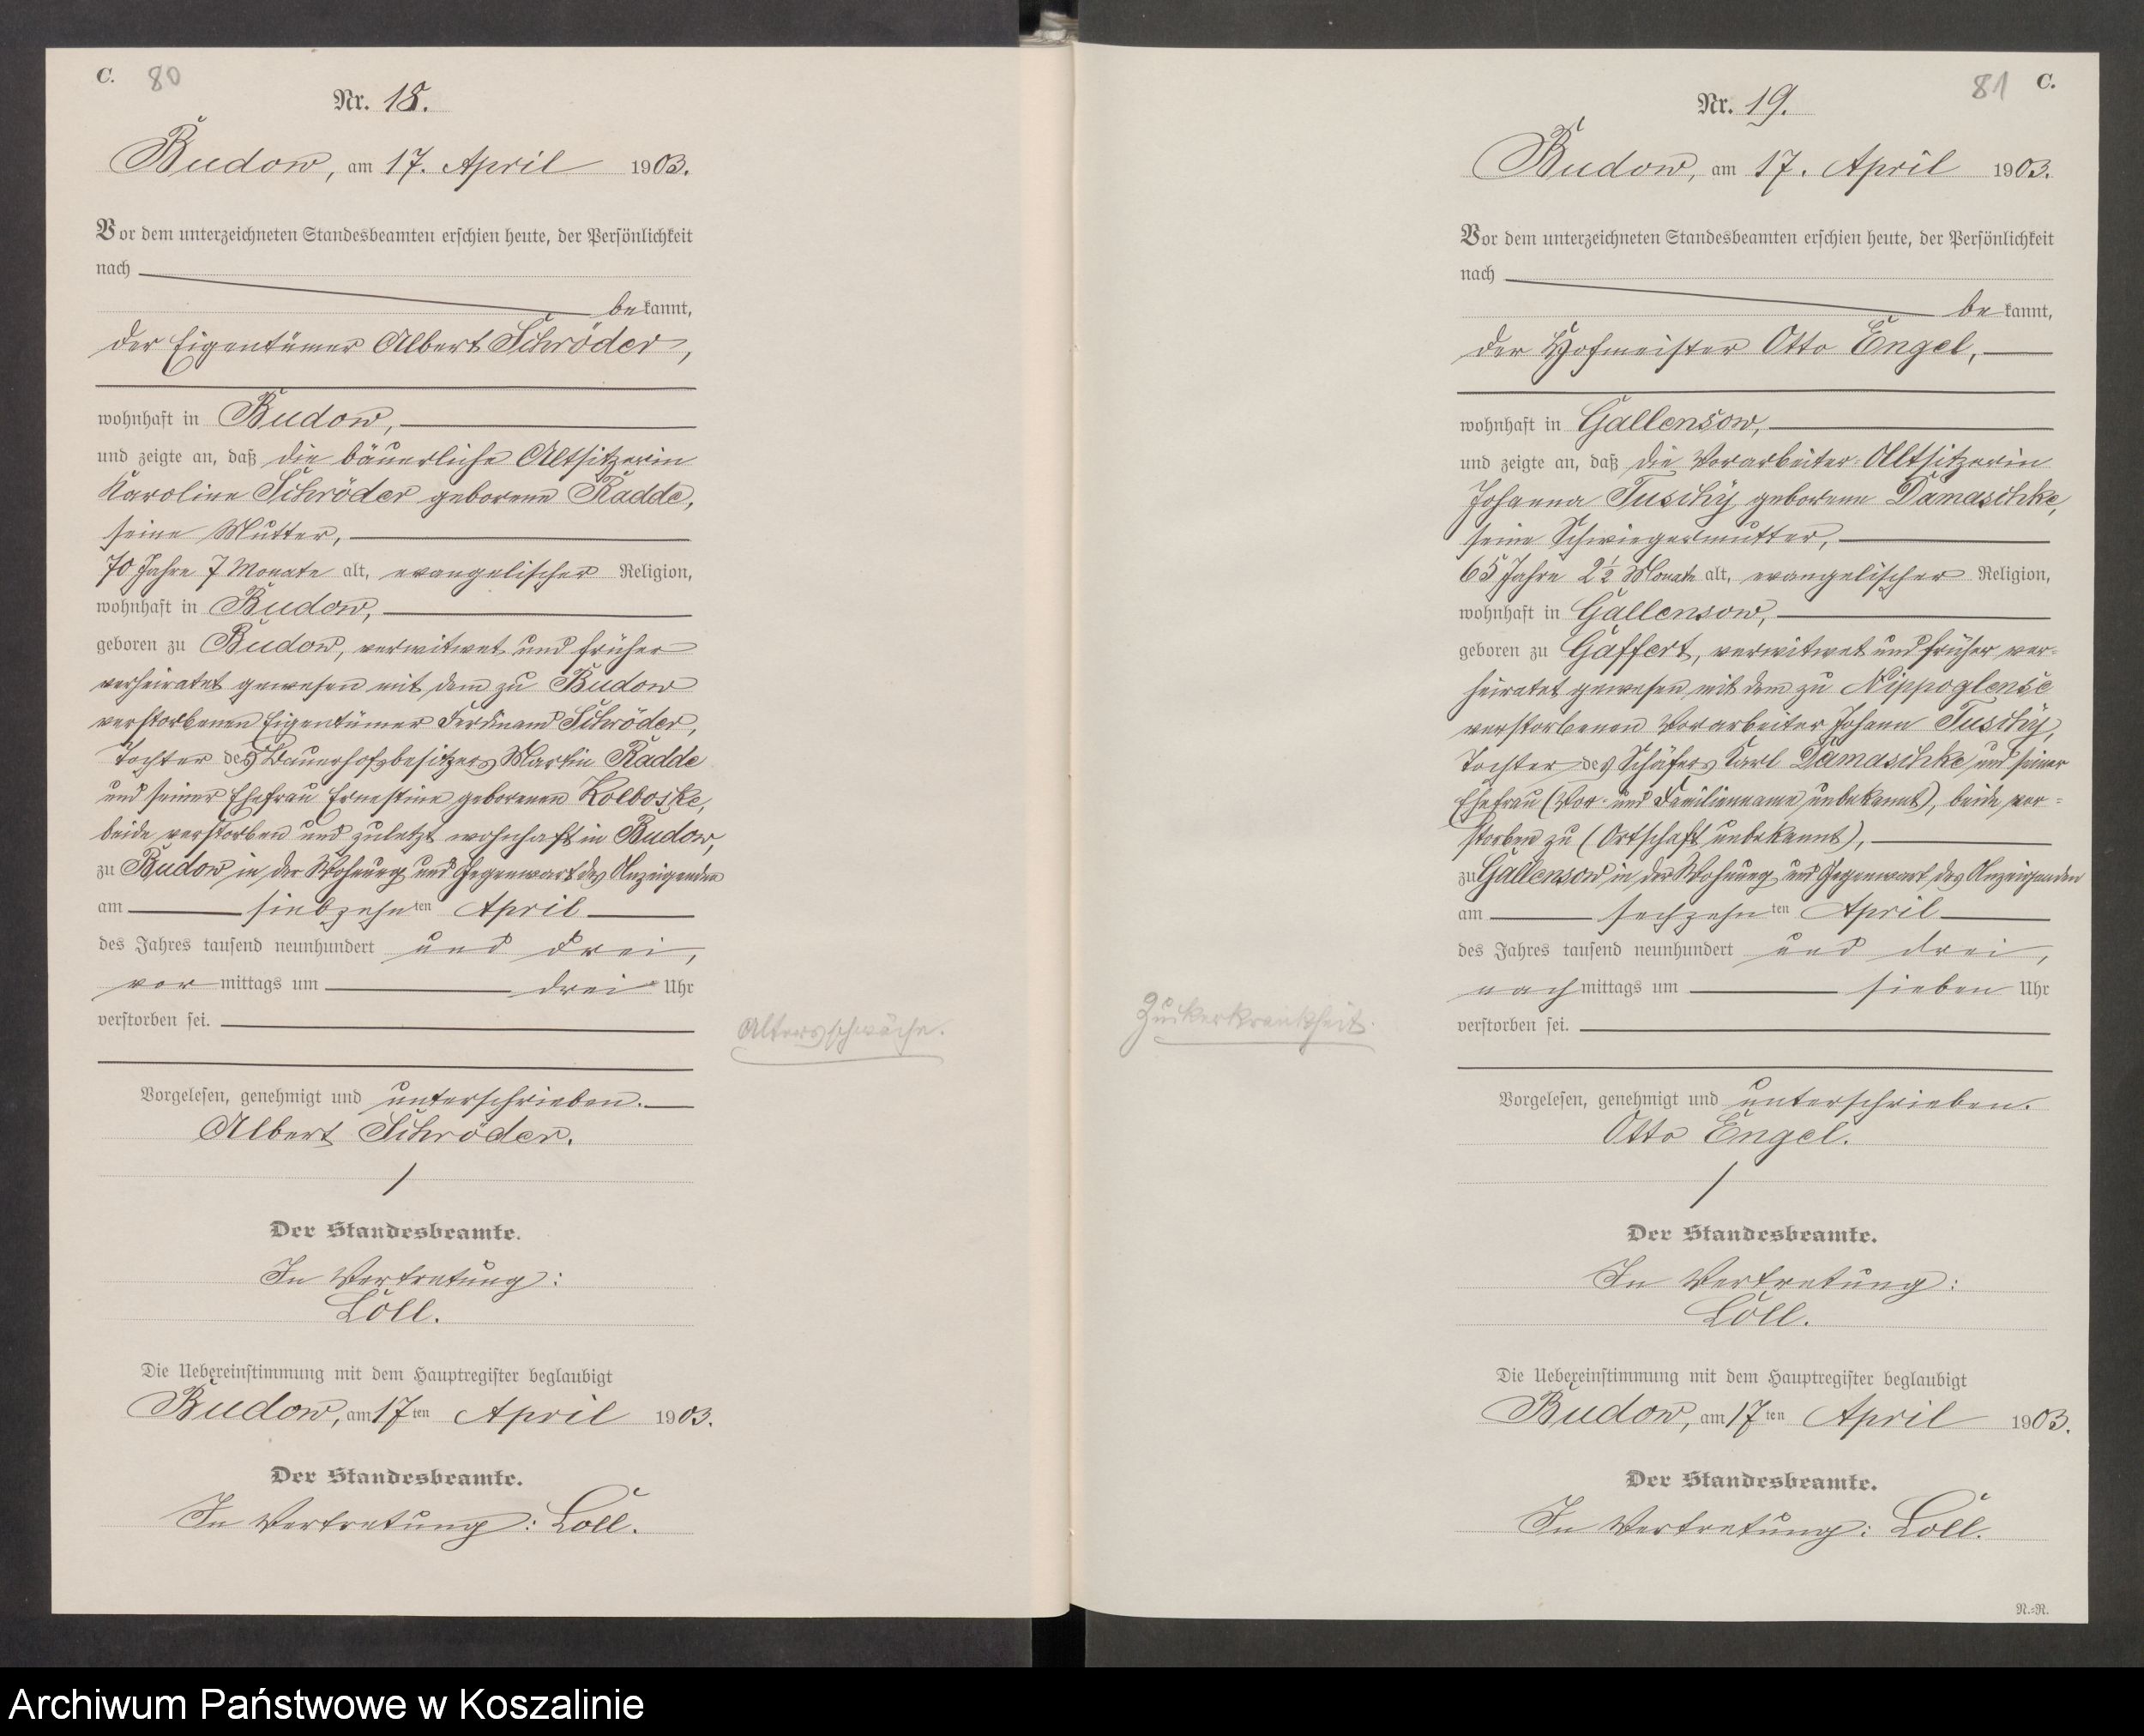 C. 80
Nr. 18.
Budow, am 17. April 1903.
Vor dem unterzeichneten Standesbeamten erschien heute, der Persönlichkeit
nach
bekannt,
der Eigentümer Albert Schröder,
wohnhaft in Budow,
und zeigte an, daß die bäuerliche Altsitzerin
Karoline Schröder geborene Radde,
seine Mutter,
70 Jahre 7 Monate alt, evangelischer Religion,
wohnhaft in Budow,
geboren zu Budow, verwitwet und früher
verheiratet gewesen mit dem zu Budow
verstorbenen Eigentümer Ferdinand Schröder,
Tochter des Bauerhofsbesitzers Martin Radde
und seiner Ehefrau Ernestine geborenen Kolboske,
beide verstorben und zuletzt wohnhaft in Budow,
zu Budow in der Wohnung und Gegenwart des Anzeigenden
am siebzehnten April
des Jahres tausend neunhundert und drei,
vormittags um drei Uhr
verstorben sei.
Altersschwäche.
Vorgelesen, genehmigt und unterschrieben.
Albert Schröder.
Der Standesbeamte.
In Vertretung:
Löll.
Die Uebereinstimmung mit dem Hauptregister beglaubigt
Budow, am 17ten April 1903.
Der Standesbeamte.
In Vertretung: Löll.
81 C.
Nr. 19.
Budow, am 17. April 1903.
Vor dem unterzeichneten Standesbeamten erschien heute, der Persönlichkeit
nach
bekannt,
der Hofmeister Otto Engel,
wohnhaft in Gallensow,
und zeigte an, daß die Vorarbeiter-Altsitzerin
Johanna Tuschy geborene Damaschke,
seine Schwiegermutter,
65 Jahre 2½ Monate alt, evangelischer Religion,
wohnhaft in Gallensow,
geboren zu Gaffert, verwitwet und früher ver-
heiratet gewesen mit dem zu Nippoglense
verstorbenen Vorarbeiter Johann Tuschy,
Tochter des Schäfers Karl Damaschke und seiner
Ehefrau (Vor- und Familienname unbekannt), beide ver-
storben zu (Ortschaft unbekannt),
zu Gallensow in der Wohnung und Gegenwart des Anzeigenden
am sechzehnten April
des Jahres tausend neunhundert und drei,
nachmittags um sieben Uhr
verstorben sei.
Zuckerkrankheit.
Vorgelesen, genehmigt und unterschrieben.
Otto Engel.
Der Standesbeamte.
In Vertretung:
Löll.
Die Uebereinstimmung mit dem Hauptregister beglaubigt
Budow, am 17ten April 1903.
Der Standesbeamte.
In Vertretung: Löll.
N.-N.
Archiwum Państwowe w Koszalinie